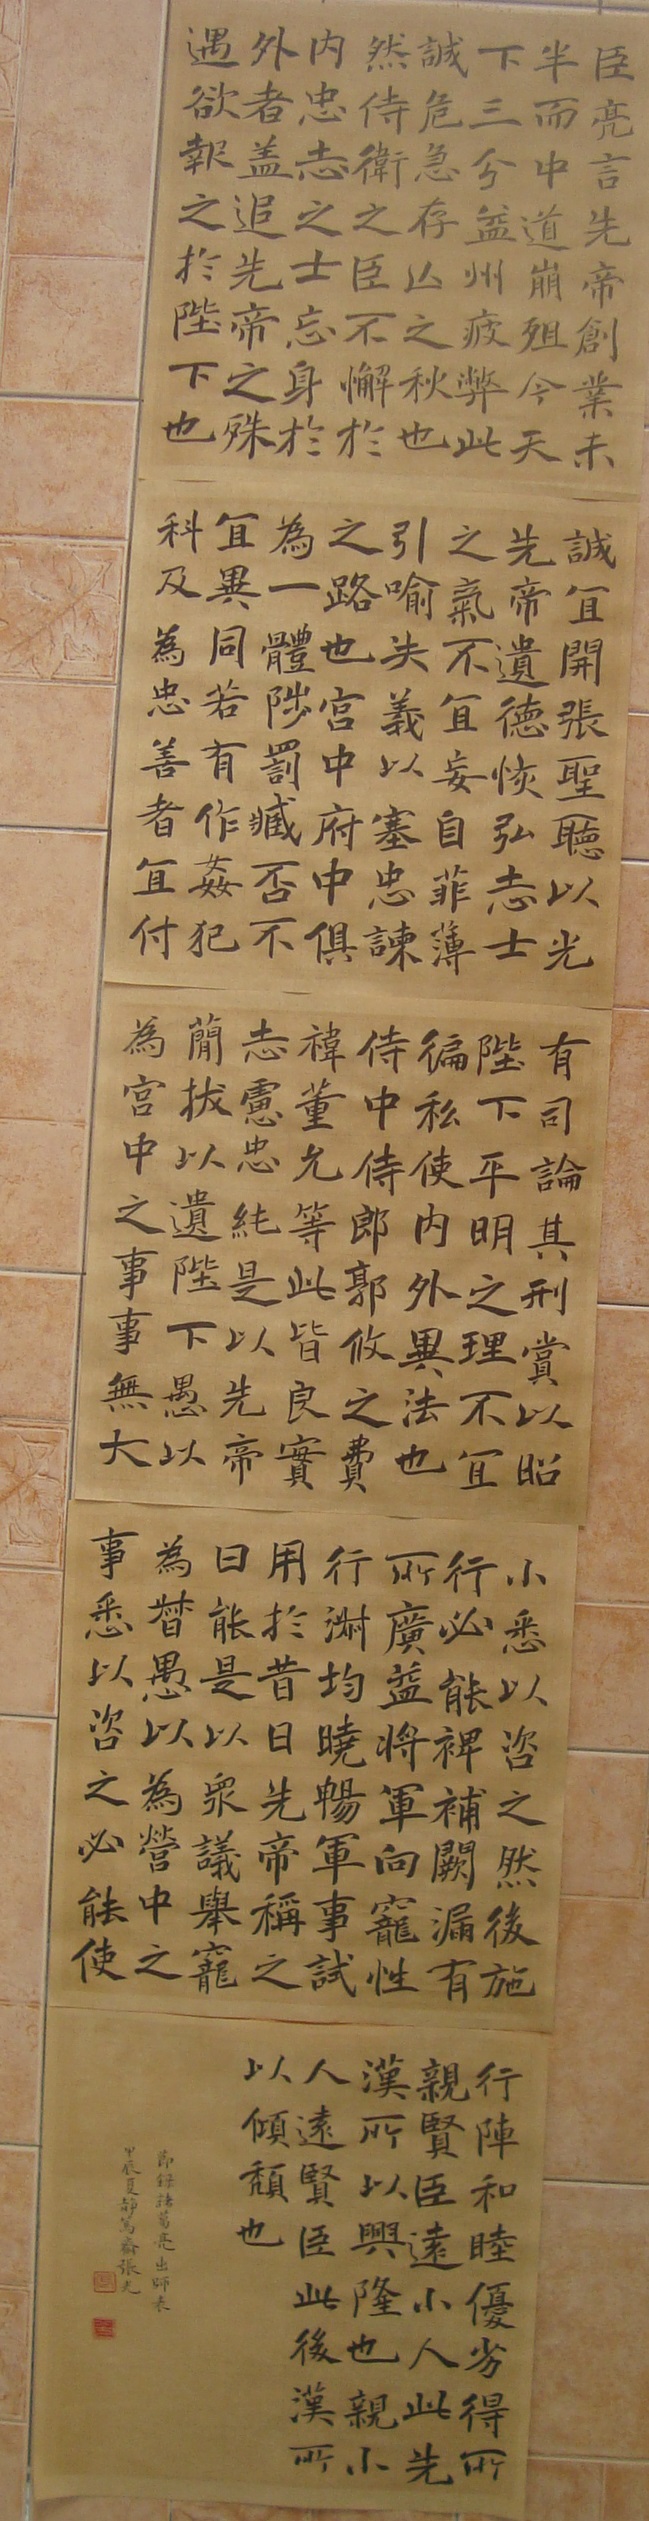 臣亮言先帝創業未
半而中道崩殂今天
下三分益州疲弊此
誠危急存亡之秋也
然侍衛之臣不懈於
内忠志之士忘身於
外者盖追先帝之殊
遇欲報之於陛下也
誠宜開張聖聽以光
先帝遺德恢弘志士
之氣不宜妄自菲薄
引喻失義以塞忠諫
之路也宮中府中俱
為一體陟罰臧否不
宜異同若有作姦犯
科及為忠善者宜付
有司論其刑賞以昭
陛下平明之理不宜
偏私使内外異法也
侍中侍郎郭攸之費
禕董允等此皆良實
志慮忠純是以先帝
簡拔以遺陛下愚以
為宮中之事事無大
小悉以咨之然後施
行必能裨補闕漏有
所廣益將軍向寵性
行淑均曉暢軍事試
用於昔日先帝稱之
曰能是以衆議舉寵
為督愚以為營中之
事悉以咨之必能使
行陣和睦優劣得所
親賢臣遠小人此先
漢所以興隆也親小
人遠賢臣此後漢所
以傾頹也
節錄諸葛亮出師表
甲辰夏靜篤齋張